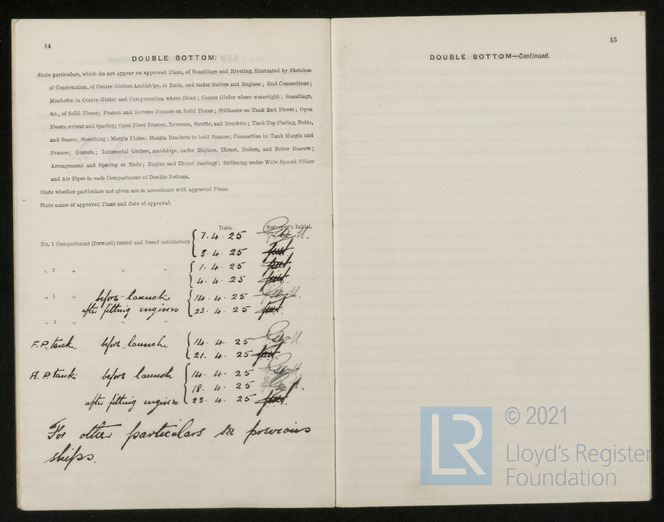 14
DOUBLE BOTTOM.
State particulars, which do not appear on approved Plans, of Scantlings and Riveting, illustrated by Sketches
of Construction, of Centre Girders Amidships, at Ends, and under Boilers and Engines; End Connections;
Manholes in Centre Girder and Compensation where fitted; Centre Girder where watertight; Scantlings,
&c., of Solid Floors; Frames and Reverse Frames on Solid Floors; Stiffeners on Tank End Floors; Open
Floors, extent and spacing; Open Floor Frames, Reverses, Struts, and Brackets; Tank Top Plating, Butts,
and Seams; Sheathing; Margin Plates; Margin Brackets to hold Frames; Connection to Tank Margin and
Frames; Gussets; Intercostal Girders, amidships, under Engines, Thrust, Boilers, and Boiler Bearers;
Arrangement and Spacing at Ends; Engine and Thrust Seatings; Stiffening under Wide Spaced Pillars
and Air Pipes in each Compartment of Double Bottom.
State whether particulars not given are in accordance with approved Plans.
State name of approved Plans and date of approval.
Date. Surveyor's Initial.
7. 4. 25
No. 1 Compartment (forward) tested and found satisfactory
8. 4. 25
„ 2 „ „ „ 1. 4. 25
4. 4. 25
„ 3 before launch 14. 4. 25
after fitting engines 23. 4. 25
„ 4 „ „ „
F.P. tank before launch 14. 4. 25
21. 4. 25
A.P. tank before launch 14. 4. 25
18. 4. 25
after fitting engines 23. 4. 25
For other particulars see previous
ships.
15
DOUBLE BOTTOM—Continued.
LR
© 2021
Lloyd's Register
Foundation